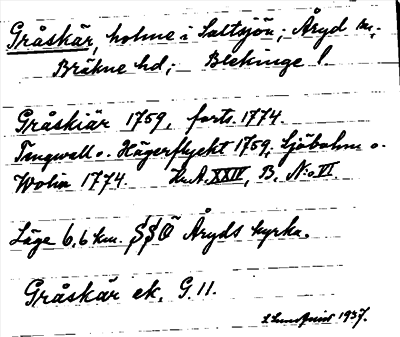 Gråskär, holme i Saltsjön; Åryd sn;
Bräkne hd; Blekinge l.
Gråskiär 1759, forts. 1774.
Tengwall o. Hägerflycht 1759, Sjöbohm o.
Wolin 1774. K.A. XXIV, B, N:o VI
Läge 6,6 km. SSÖ Åryds kyrka.
Gråskär ek. G.11.
1937.